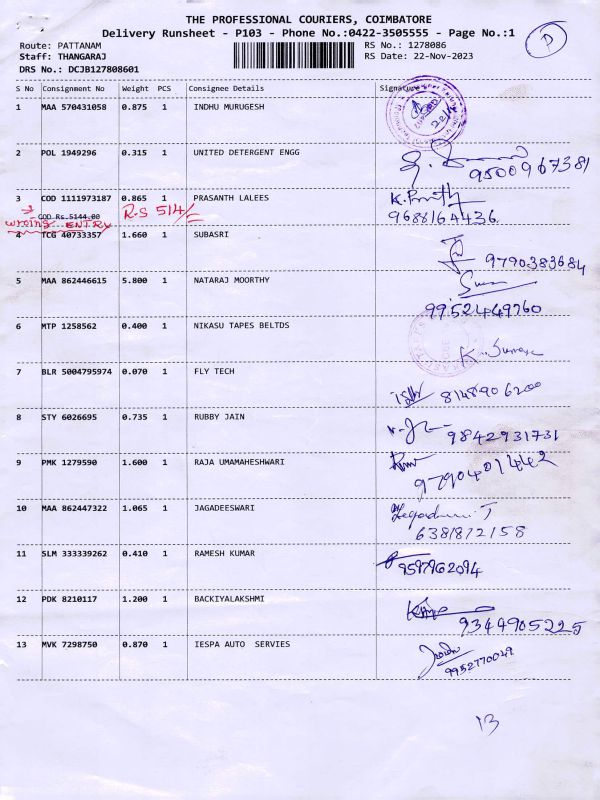 THE PROFESSIONAL COURIERS, COIMBATORE
Delivery Runsheet - P103 - Phone No.:0422-3505555 - Page No.:1
P
Route: PATTANAM RS No.: 1278086
Staff: THANGARAJ RS Date: 22-Nov-2023
DRS No.: DCJB127808601
S No Consignment No Weight PCS Consignee Details Signature
1 MAA 570431058 0.875 1 INDHU MURUGESH
2 POL 1949296 0.315 1 UNITED DETERGENT ENGG
9500967381
3 COD 1111973187 0.865 1 PRASANTH LALEES
COD Rs.5144.00 R.S 514/=
9688164436
WRONG ENTRY
4 TCG 40733357 1.660 1 SUBASRI
9790383684
5 MAA 862446615 5.800 1 NATARAJ MOORTHY
9952449760
6 MTP 1258562 0.400 1 NIKASU TAPES BELTDS
7 BLR 5004795974 0.070 1 FLY TECH
8148906200
8 STY 6026695 0.735 1 RUBBY JAIN
9842931731
9 PMK 1279590 1.600 1 RAJA UMAMAHESHWARI
9790401442
10 MAA 862447322 1.065 1 JAGADEESWARI
6381872158
11 SLM 333339262 0.410 1 RAMESH KUMAR
9597962094
12 PDK 8210117 1.200 1 BACKIYALAKSHMI
9344905225
13 MVK 7298750 0.870 1 IESPA AUTO SERVIES
9952770029
13